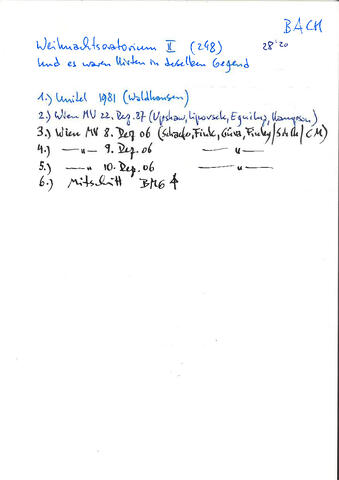 BACH
Weihnachtsoratorium II (248) 28'20
Und es waren Hirten in derselben Gegend
1.) Unitel 1981 (Waldhausen)
2.) Wien MV 22. Dez. 87 (Upshaw, Lipovsek, Equiluz, Hampson)
3.) Wien MV 8. Dez 06 (Schäfer, Fink, Güra, Finley / Stelle / CM)
4.) —"— 9. Dez. 06 —"—
5.) —"— 10. Dez. 06 —"—
6.) Mitschnitt BMG